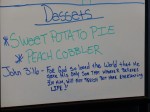 Desserts
* SWEET POTATO PIE
* PEACH COBBLER
John 3:16 - For God so loved the world that He
gave His only Son that whoever believes
in Him will not perish but have everlasting
LIFE!!